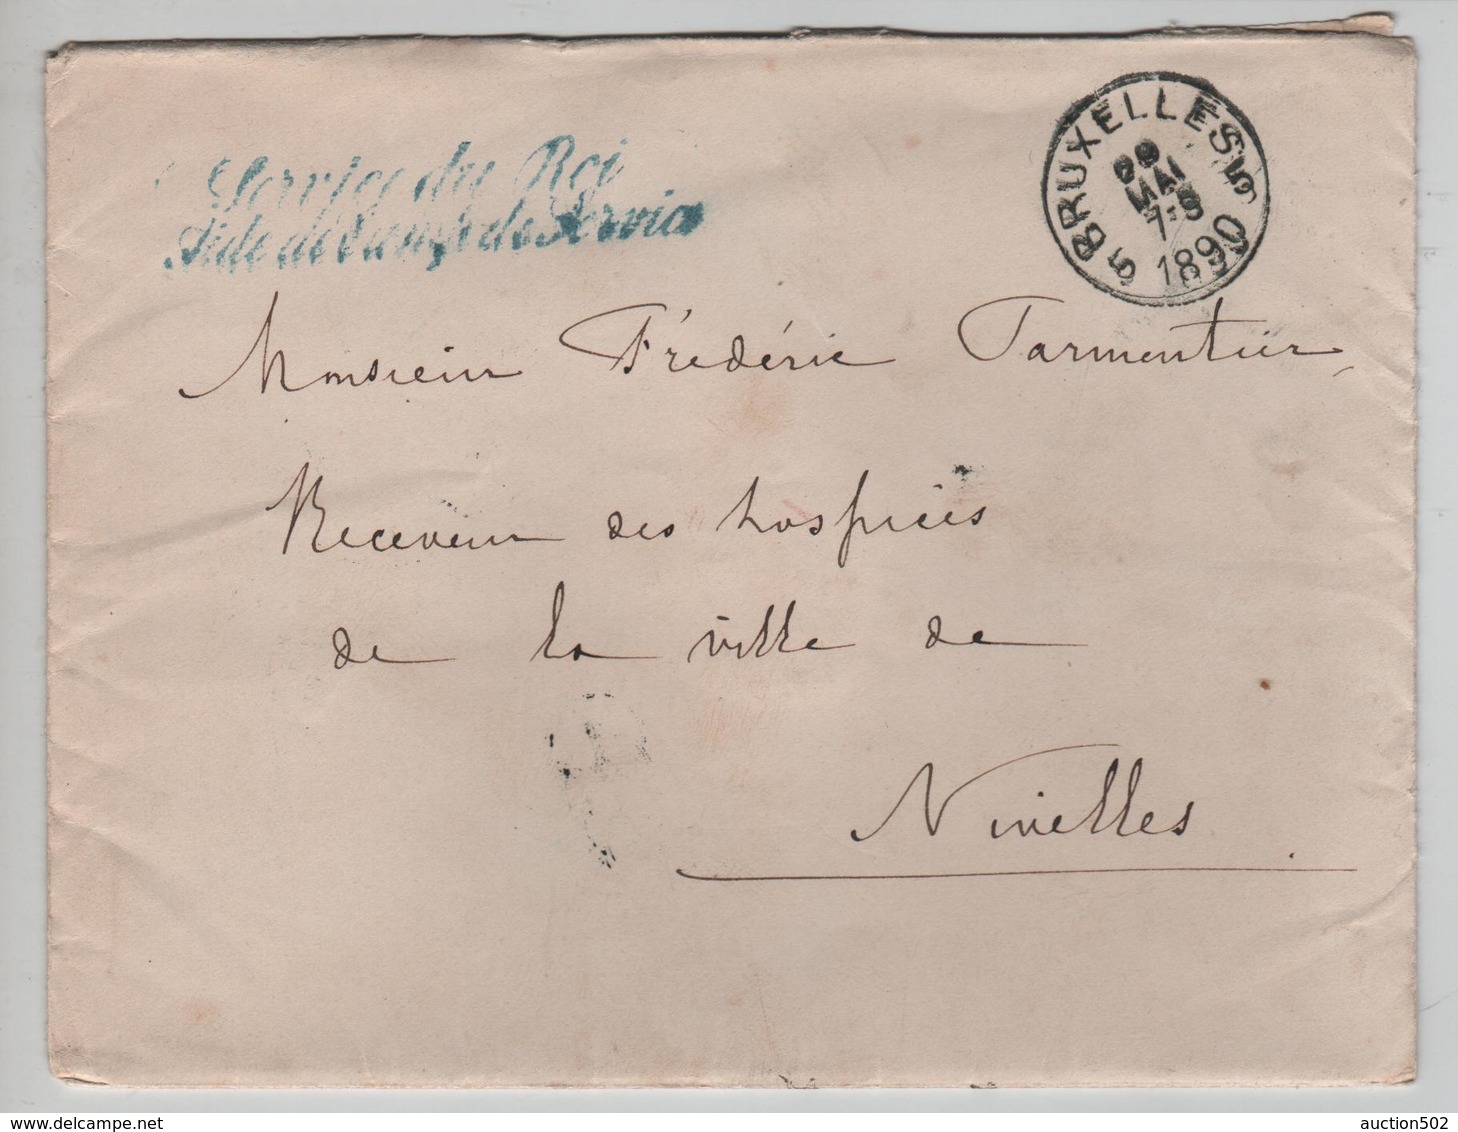 Service du Roi
Aide de Camp de Service
5 BRUXELLES 5
29
MAI
7-S
1890
Monsieur Frédéric Parmentier,
Receveur des hospices
de la ville de
Nivelles
www.delcampe.net
auction502